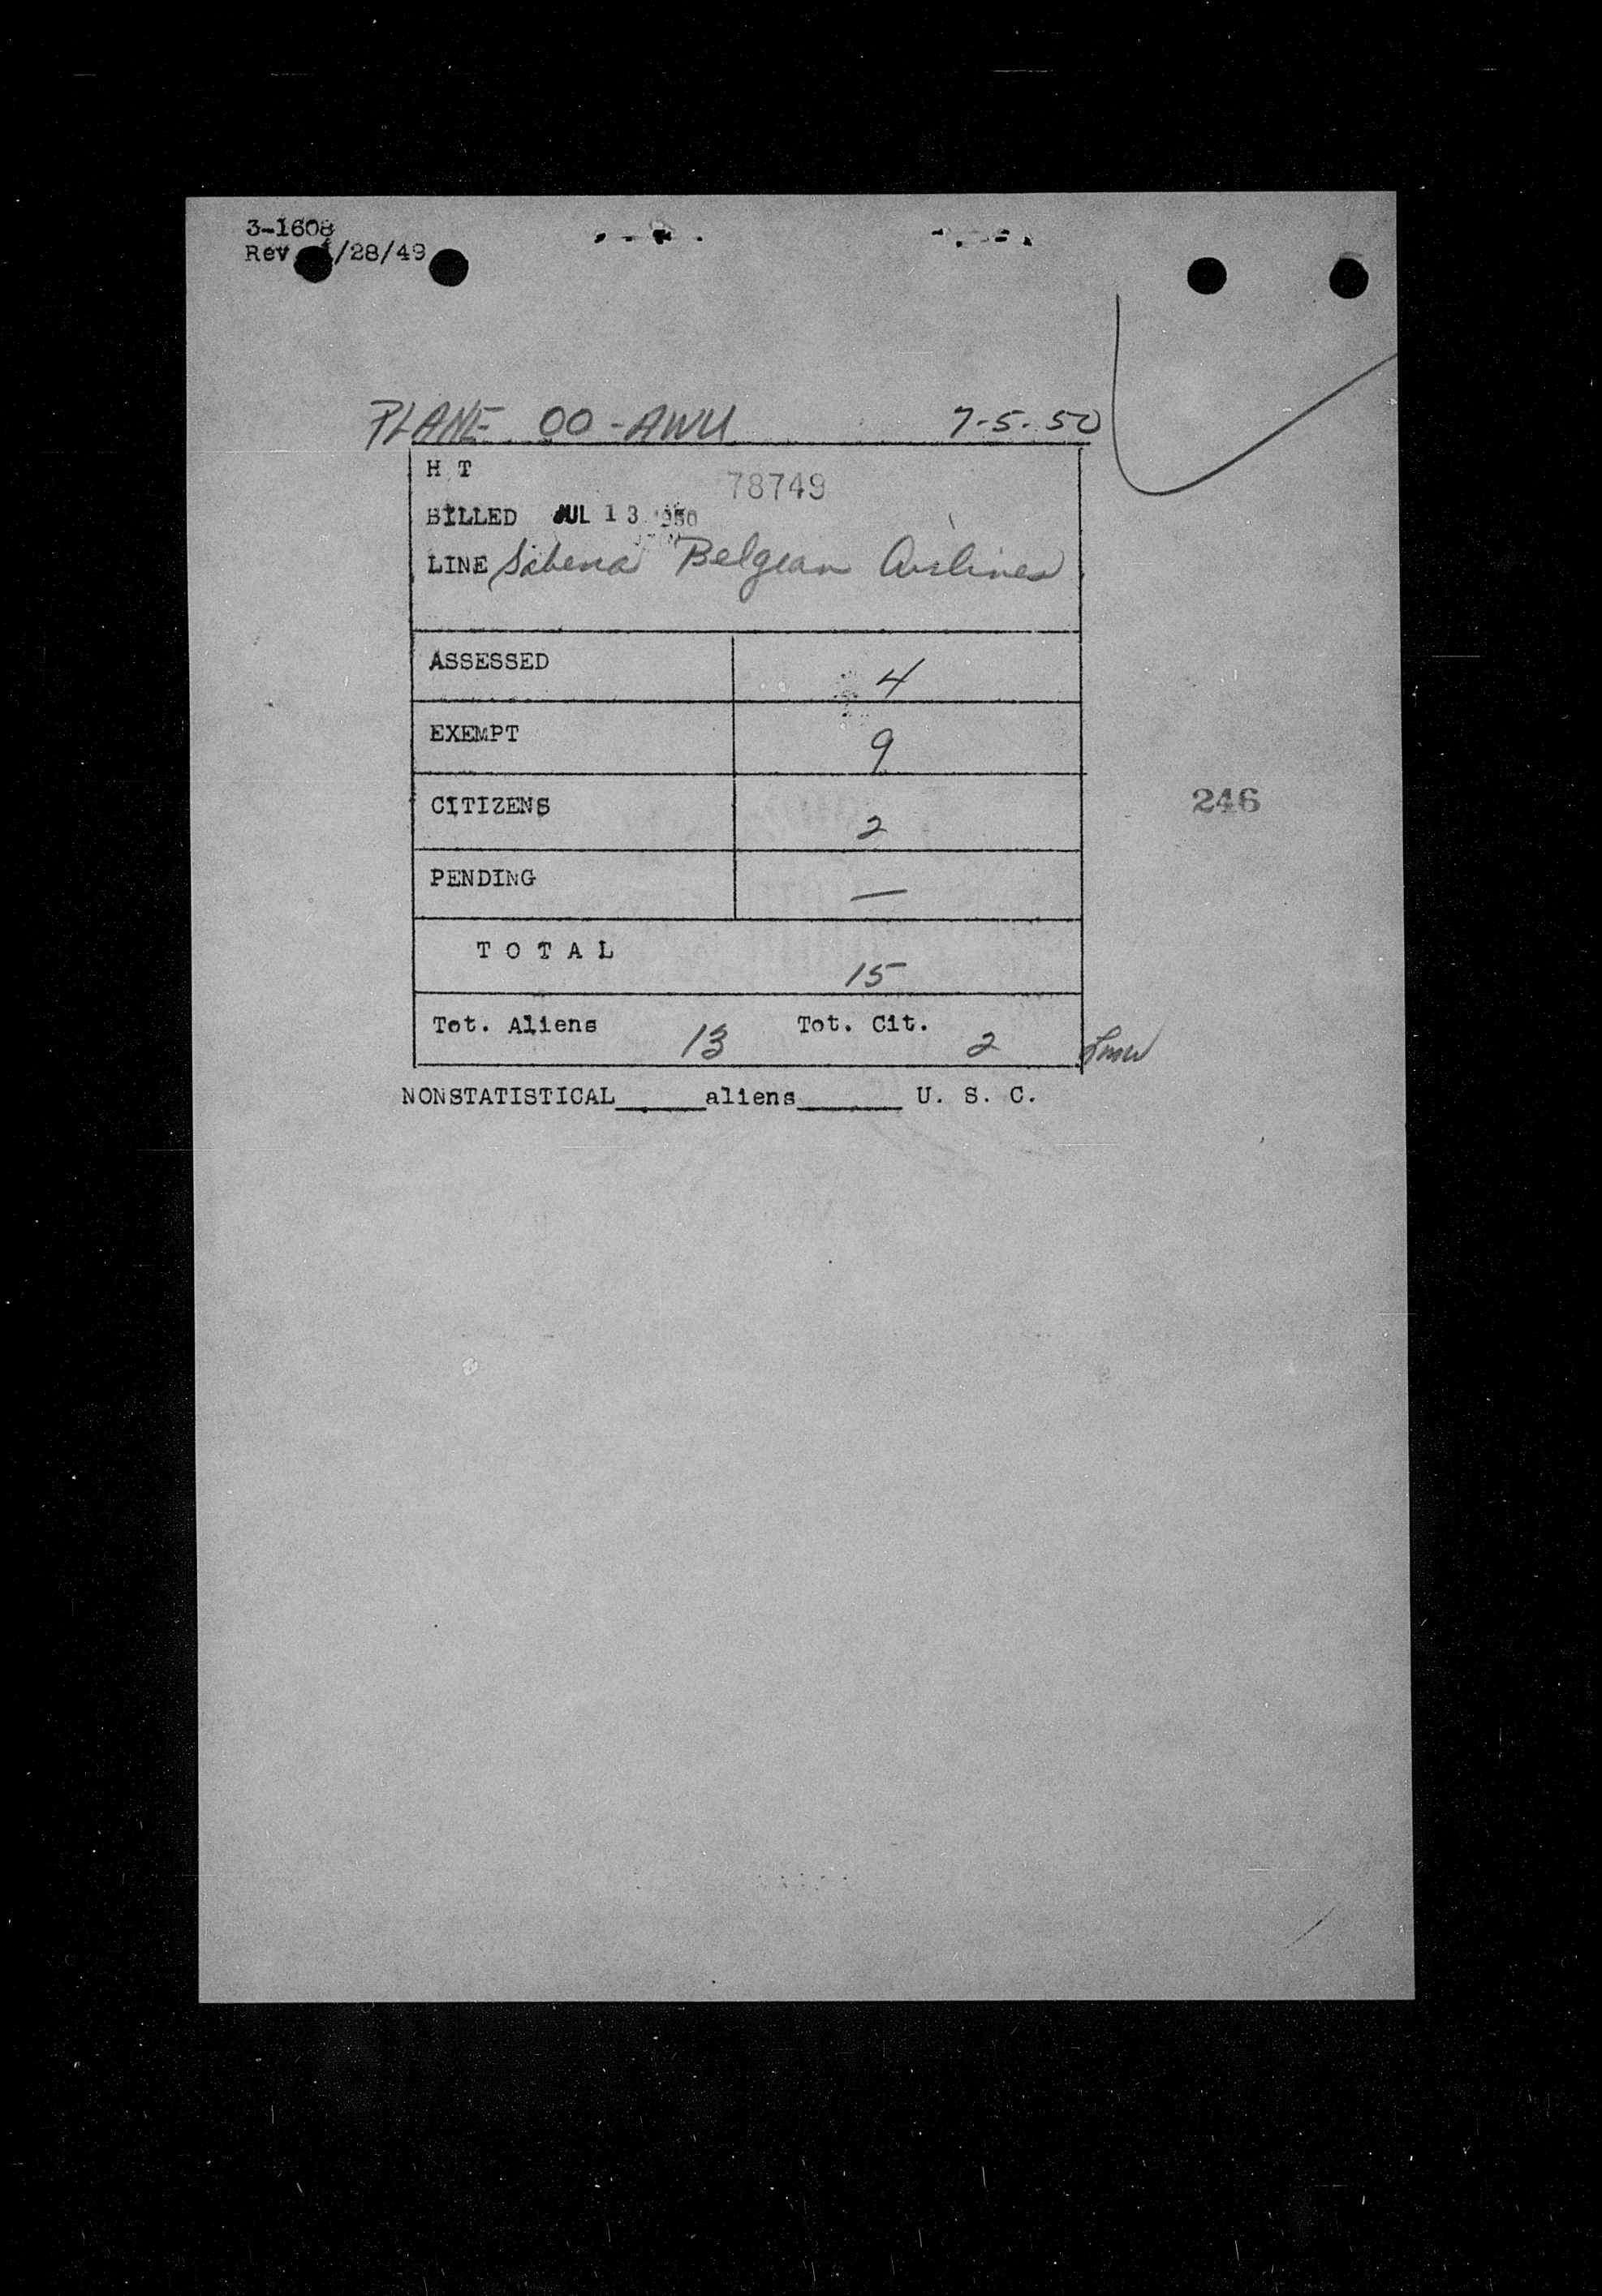 3-1608
Rev /28/49
PLANE OO-AWU 7-5-50
H T
78749
BILLED JUL 13 1950
LINE Sabena Belgian Airlines
ASSESSED 4
EXEMPT 9
CITIZENS 2
246
PENDING —
TOTAL 15
Tot. Aliens 13 Tot. Cit. 2
NONSTATISTICAL_____aliens______ U. S. C.